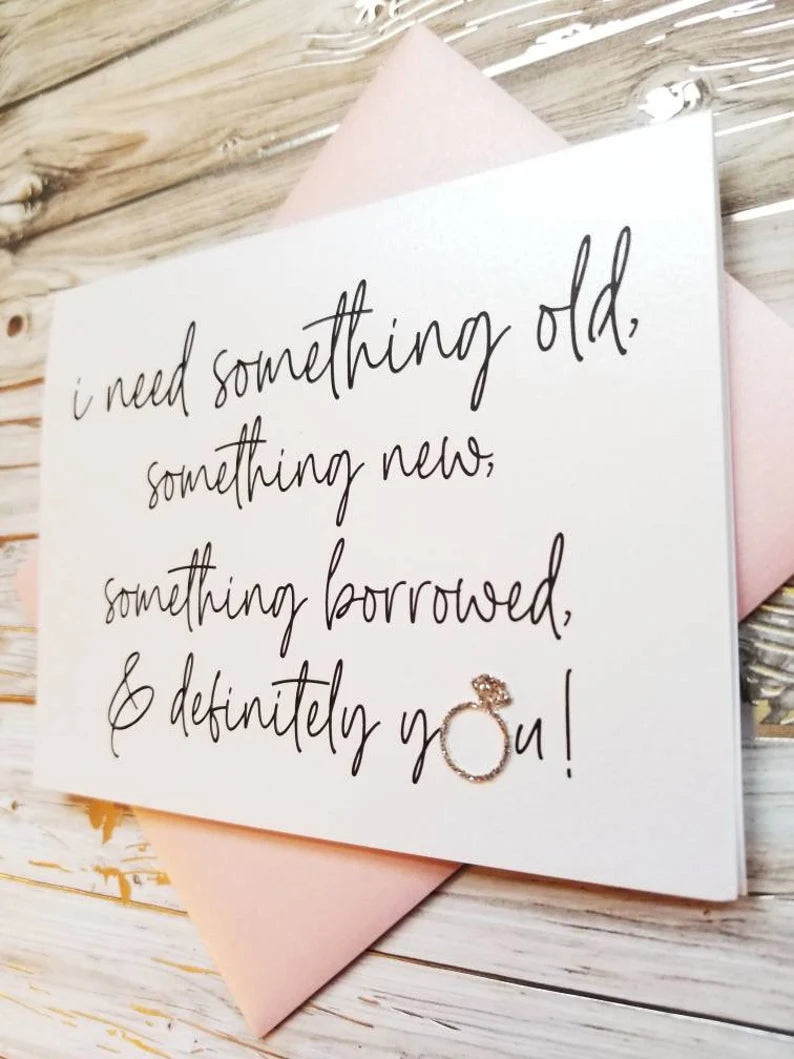 i need something old,
something new,
something borrowed,
& definitely you!